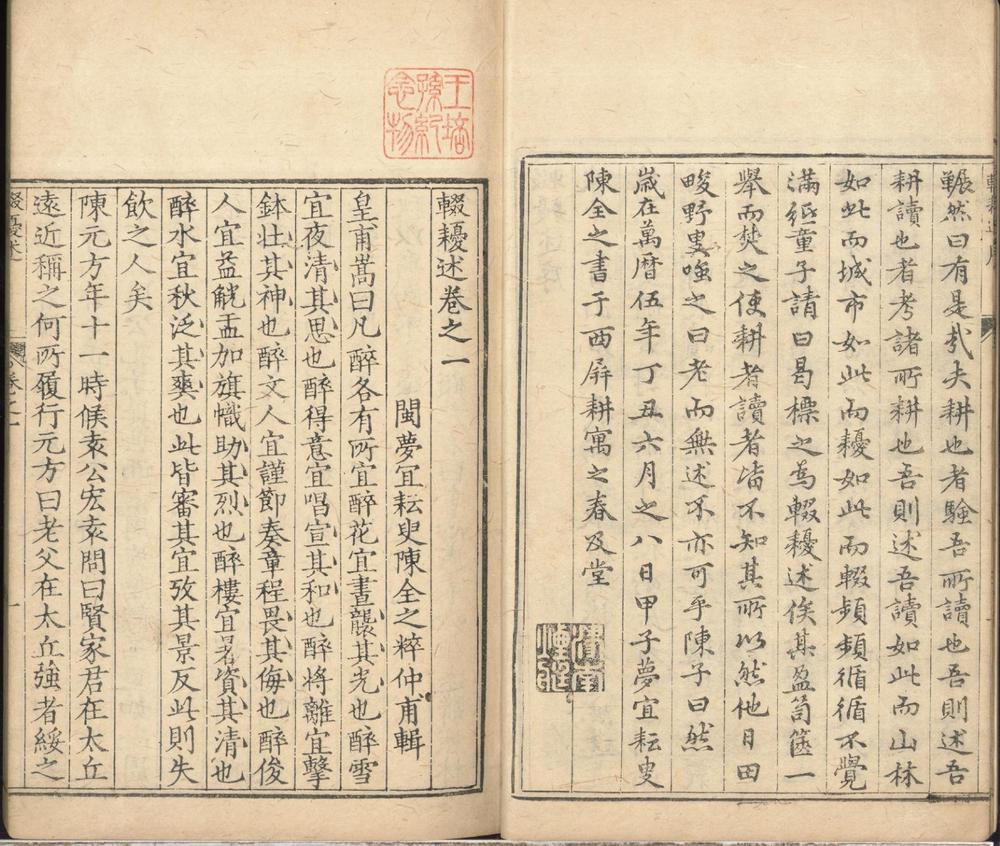 輾然曰有是㢤夫耕也者驗吾所讀也吾則述吾
耕讀也者考諸所耕也吾則述吾讀如此而山林
如此而城市如此而耰如此而輟頻頻循循不覺
滿紙童子請曰曷標之為輟耰述俟其盈笥篋一
舉而焚之使耕者讀者皆不知其所以然他日田
畯野叟嗤之曰老而無述不亦可乎陳子曰然
歲在萬曆伍年丁丑六月之八日甲子夢宜耘叟
陳全之書于西屏耕寓之春及堂
輟耰述卷之一
閩夢宜耘叟陳全之粹仲甫輯
皇甫嵩曰凡醉各有所宜醉花宜晝襲其光也醉雪
宜夜清其思也醉得意宜唱宣其和也醉將離宜擊
鉢壯其神也醉文人宜謹節奏章程畏其侮也醉俊
人宜益觥盂加旗幟助其烈也醉樓宜暑資其清也
醉水宜秋泛其爽也此皆審其宜攷其景反此則失
飲之人矣
陳元方年十一時候袁公宏袁問曰賢家君在太丘
遠近稱之何所履行元方曰老父在太丘強者綏之